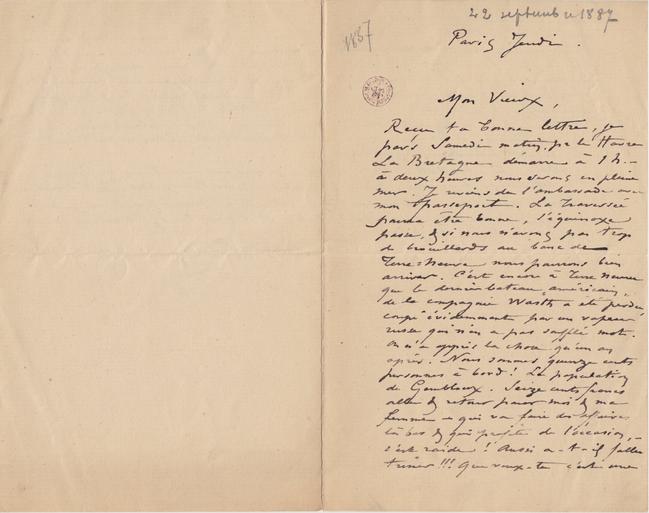 22 septembre 1887
1887
Paris Jeudi.
Mon Vieux,
Reçu ta bonne lettre, je
pars Samedi matin, pr le Havre
La Bretagne démarre à 1 h. -
à deux heures nous serons en pleine
mer. Je reviens de l'ambassade avec
mon passeport. La traversée
pourra être bonne, l'équinoxe
passé, & si nous n'avons pas trop
de brouillards au banc de
Terre=Neuve nous pourrons bien
arriver. C'est encore à Terre Neuve
que le dernier bateau américain,
de la compagnie a été perdu
coupé évidemment par un vapeur
russe qui n'en a pas soufflé mot.
On n'a appris la chose qu'un an
après. Nous sommes quinze cents
personnes à bord! La population
de Gembloux. Seize cents francs
aller & retour pour moi & ma
femme qui va faire des affaires
là bas & qui profite de l'occasion, -
c'est raide! Aussi a-t-il fallu
trimer!!! Que veux-tu c'est une